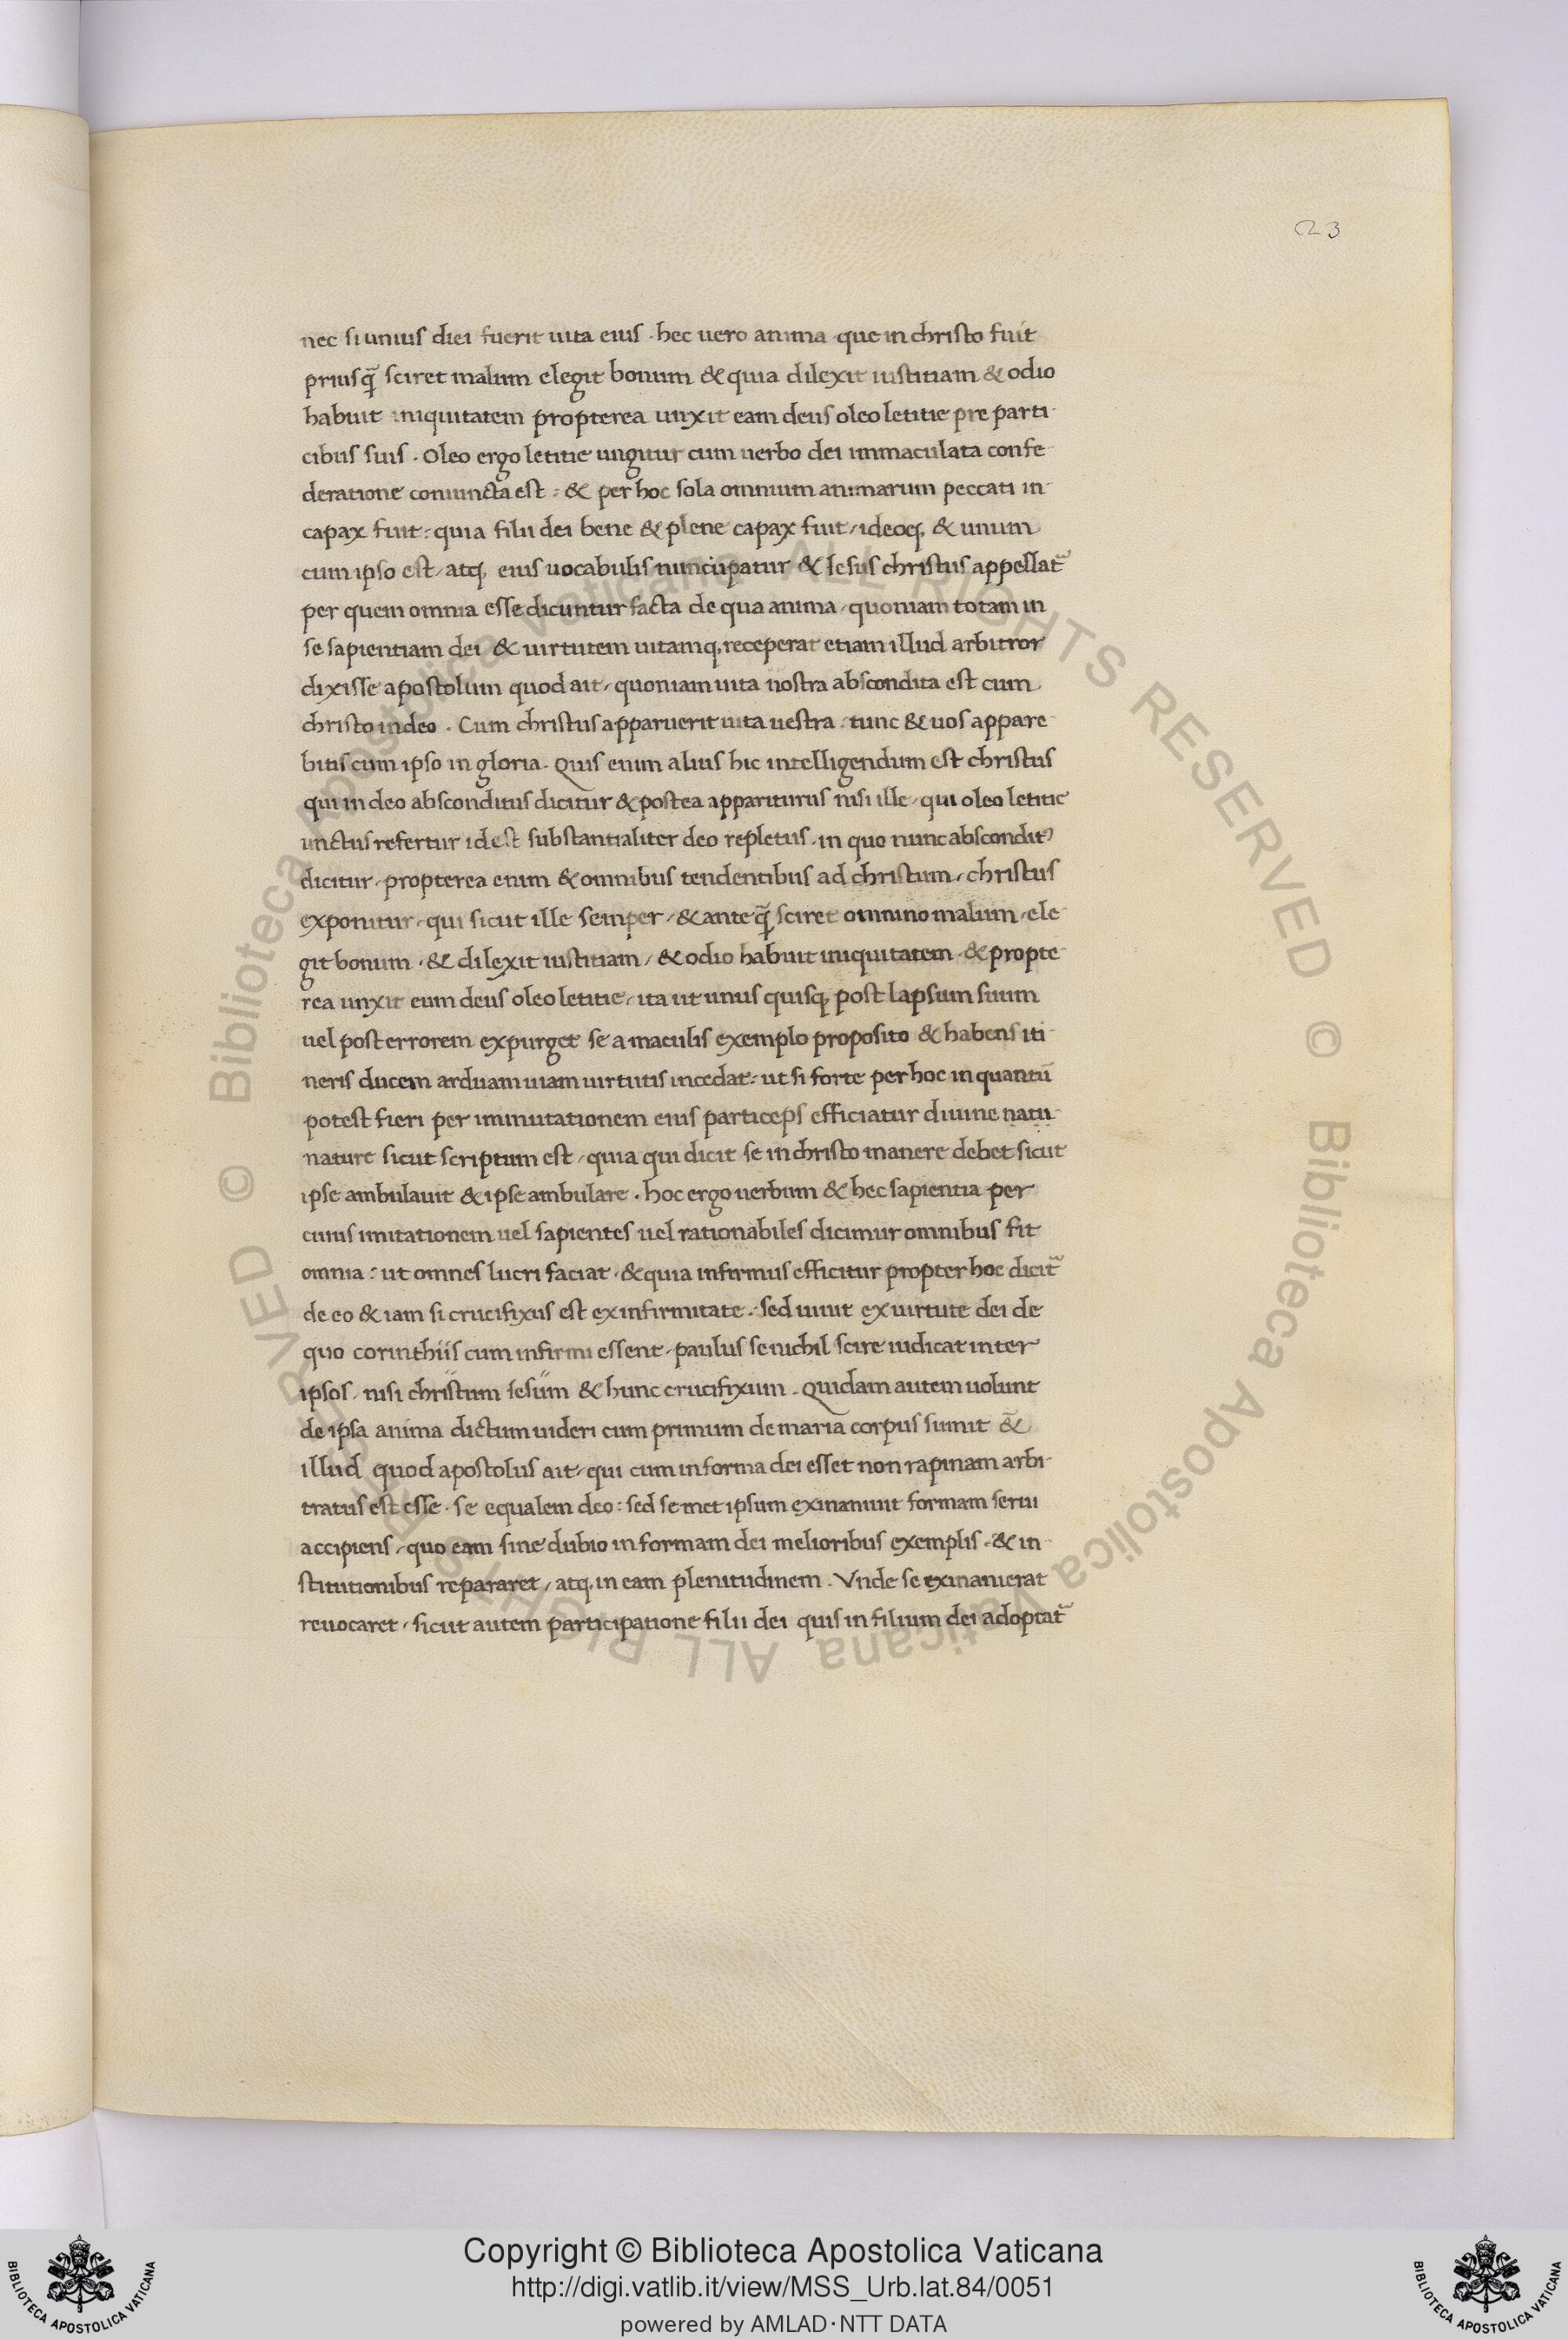 23
nec si unius diei fuerit uita eius . hec uero anima que in christo fuit
prius q̃ sciret malum elegit bonum & quia dilexit iustitiam & odio
habuit iniquitatem propterea unxit eam deus oleo letitie pre parti-
cibus suis . Oleo ergo letitie ungitur cum uerbo dei immaculata confe-
deratione coniuncta est : & per hoc sola omnium animarum peccati in-
capax fuit : quia filii dei bene & plene capax fuit / ideoq; & unum
cum ipso est / atq; eius uocabulis nuncupatur & Iesus christus appellat᷑
per quem omnia esse dicuntur facta de qua anima / quoniam totam in
se sapientiam dei & uirtutem uitamq; receperat etiam illud arbitror
dixisse apostolum quod ait / quoniam uita nostra abscondita est cum
christo in deo . Cum christus apparuerit uita uestra . tunc & uos appare-
bitis cum ipso in gloria . Quis enim alius hic intelligendum est christus
qui in deo absconditus dicitur & postea appariturus nisi ille / qui oleo letitie
unctus refertur id est substantialiter deo repletus . in quo nunc abscondit⁹
dicitur . propterea enim & omnibus tendentibus ad christum / christus
exponitur / qui sicut ille semper / & ante q̃ sciret omnino malum / ele-
git bonum . & dilexit iustitiam / & odio habuit iniquitatem . & propte-
rea unxit eum deus oleo letitie / ita ut unus quisq; post lapsum suum
uel post errorem expurget se a maculis exemplo proposito & habens iti-
neris ducem arduam uiam uirtutis incedat : ut si forte per hoc in quantū
potest fieri per immutationem eius particeps efficiatur diuine natu-
nature sicut scriptum est / quia qui dicit se in christo manere debet sicut
ipse ambulauit & ipse ambulare . hoc ergo uerbum & hec sapientia per
cuius imitationem uel sapientes uel rationabiles dicimur omnibus fit
omnia : ut omnes lucri faciat . & quia infirmus efficitur propter hoc dicit᷑
de eo & iam si crucifixus est ex infirmitate . sed uiuit ex uirtute dei de
quo corinthiis cum infirmi essent / paulus se nichil scire iudicat inter
ipsos / nisi christum Iesum & hunc crucifixum . Quidam autem uolunt
de ipsa anima dictum uideri cum primum de maria corpus sumit &
illud quod apostolus ait / qui cum in forma dei esset non rapinam arbi-
tratus est esse . se equalem deo : sed semet ipsum exinaniuit formam serui
accipiens / quo eam sine dubio in formam dei melioribus exemplis . & in-
stitutionibus repararet / atq; in eam plenitudinem . Vnde se exinanierat
reuocaret / sicut autem participatione filii dei quis in filium dei adoptat᷑
© Biblioteca Apostolica Vaticana ALL RIGHTS RESERVED © Biblioteca Apostolica Vaticana ALL RIGHTS RESERVED
Copyright © Biblioteca Apostolica Vaticana
http://digi.vatlib.it/view/MSS_Urb.lat.84/0051
powered by AMLAD·NTT DATA
BIBLIOTECA APOSTOLICA VATICANA
BIBLIOTECA APOSTOLICA VATICANA